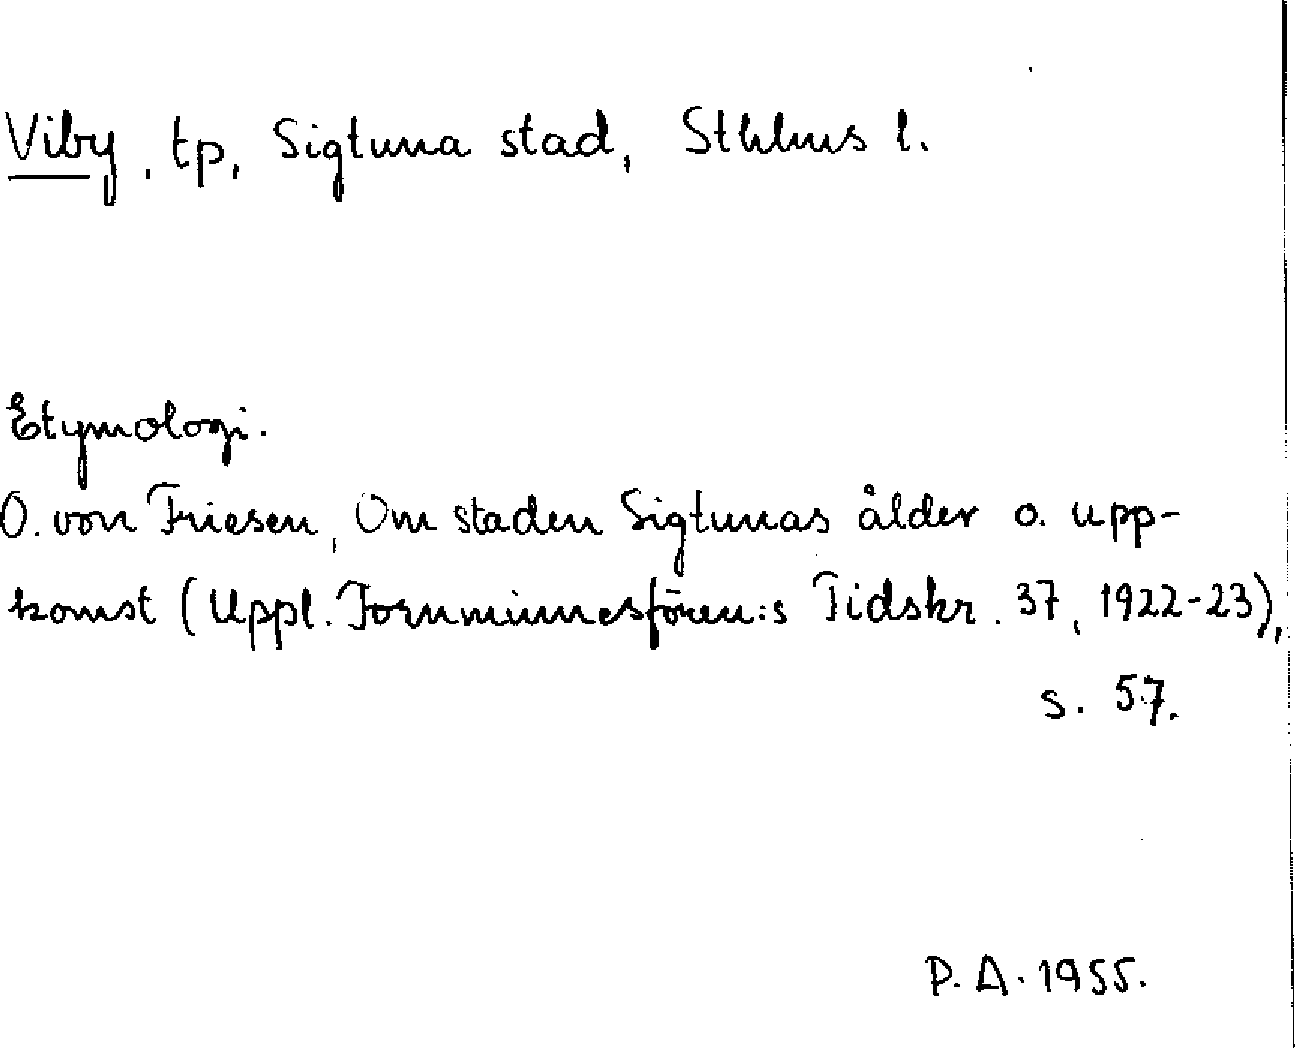 Viby, tp, Sigtuna stad, Sthlms l.
Etymologi.
O. von Friesen, Om staden Sigtunas ålder o. upp-
komst (Uppl. Fornminnesfören:s Tidskr. 37, 1922-23),
s. 57.
P. A. 1955.